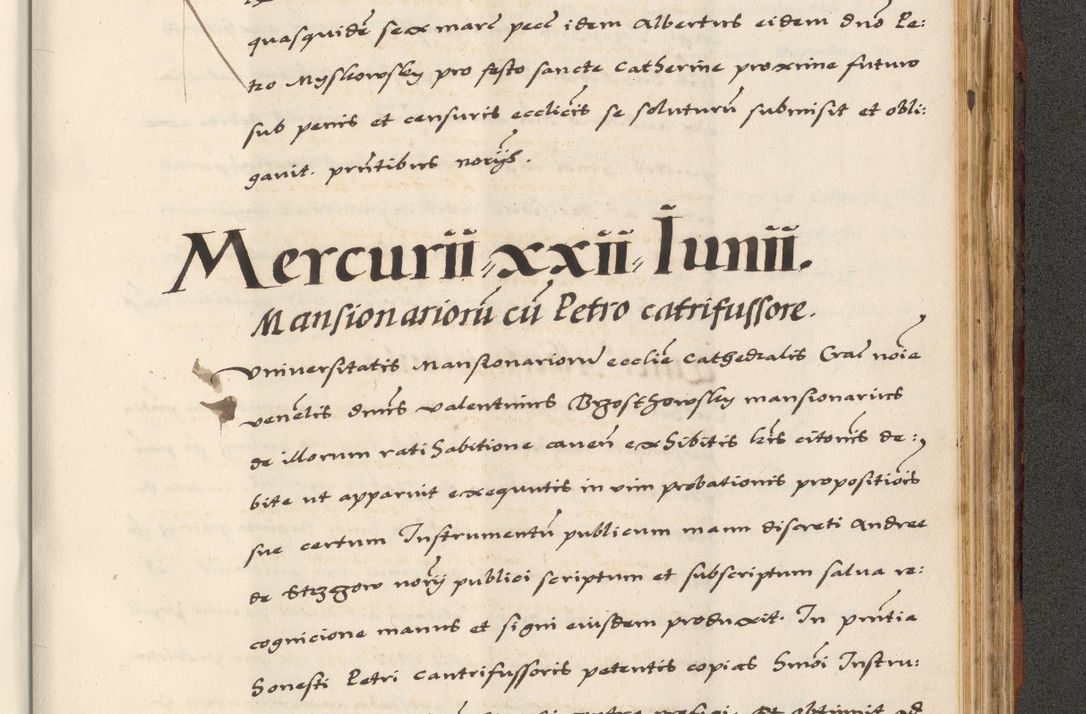 quasquidē sex marc pecc idem Albertus eidem dño Pe:
tro Myskowsky pro festo sancte Catherine proxime futuro
sub penis et censuris ecclīcis se soluturū submisit et obli:
gavit. pñtibus norijs.
Mercurii xxii Iunii.
Mansionariorū cū Petro catrifussore.
Universitatis Mansionariorū ecclīe Cathedralis Crac noīe
venēlis dñus Valentinus Brzosthowsky mansionarius
de illorum ratihabitione caveñ exhibitis līris citorīis de:
bite ut apparuit exequutis in vim probationis propositiōis
sue certum Instrumentū publicum manu discreti Andree
de Strzegow norij publici scriptum et subscriptum salva re:
cognicione manus et signi eiusdem produxit. In pñtia
honesti Petri cantrifussoris petentis copias hmōi Instru: